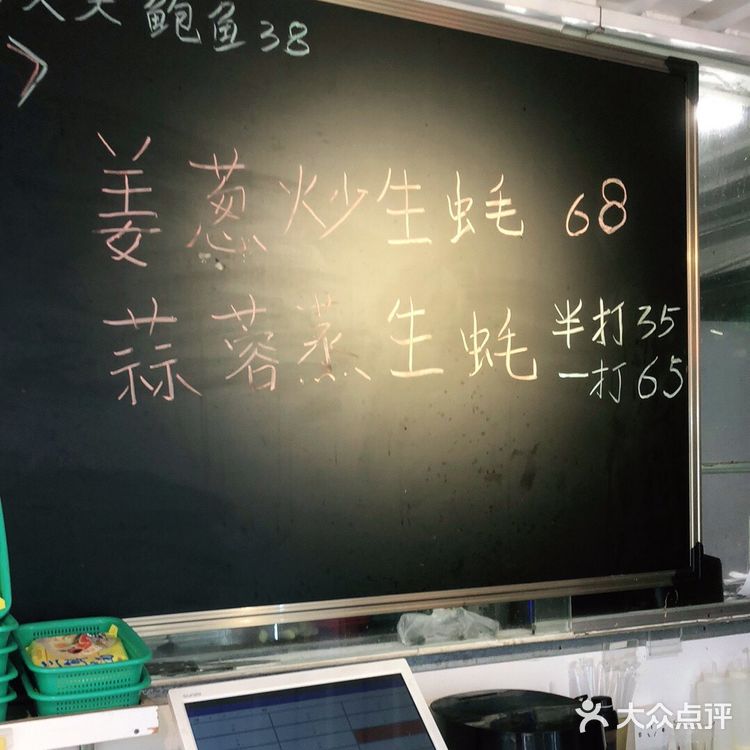 鲍鱼38
姜葱炒生蚝 68
蒜蓉蒸生蚝 半打35
一打65
大众点评